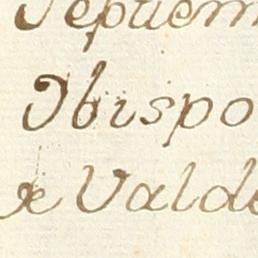 Septiem
Obispo
de Valde